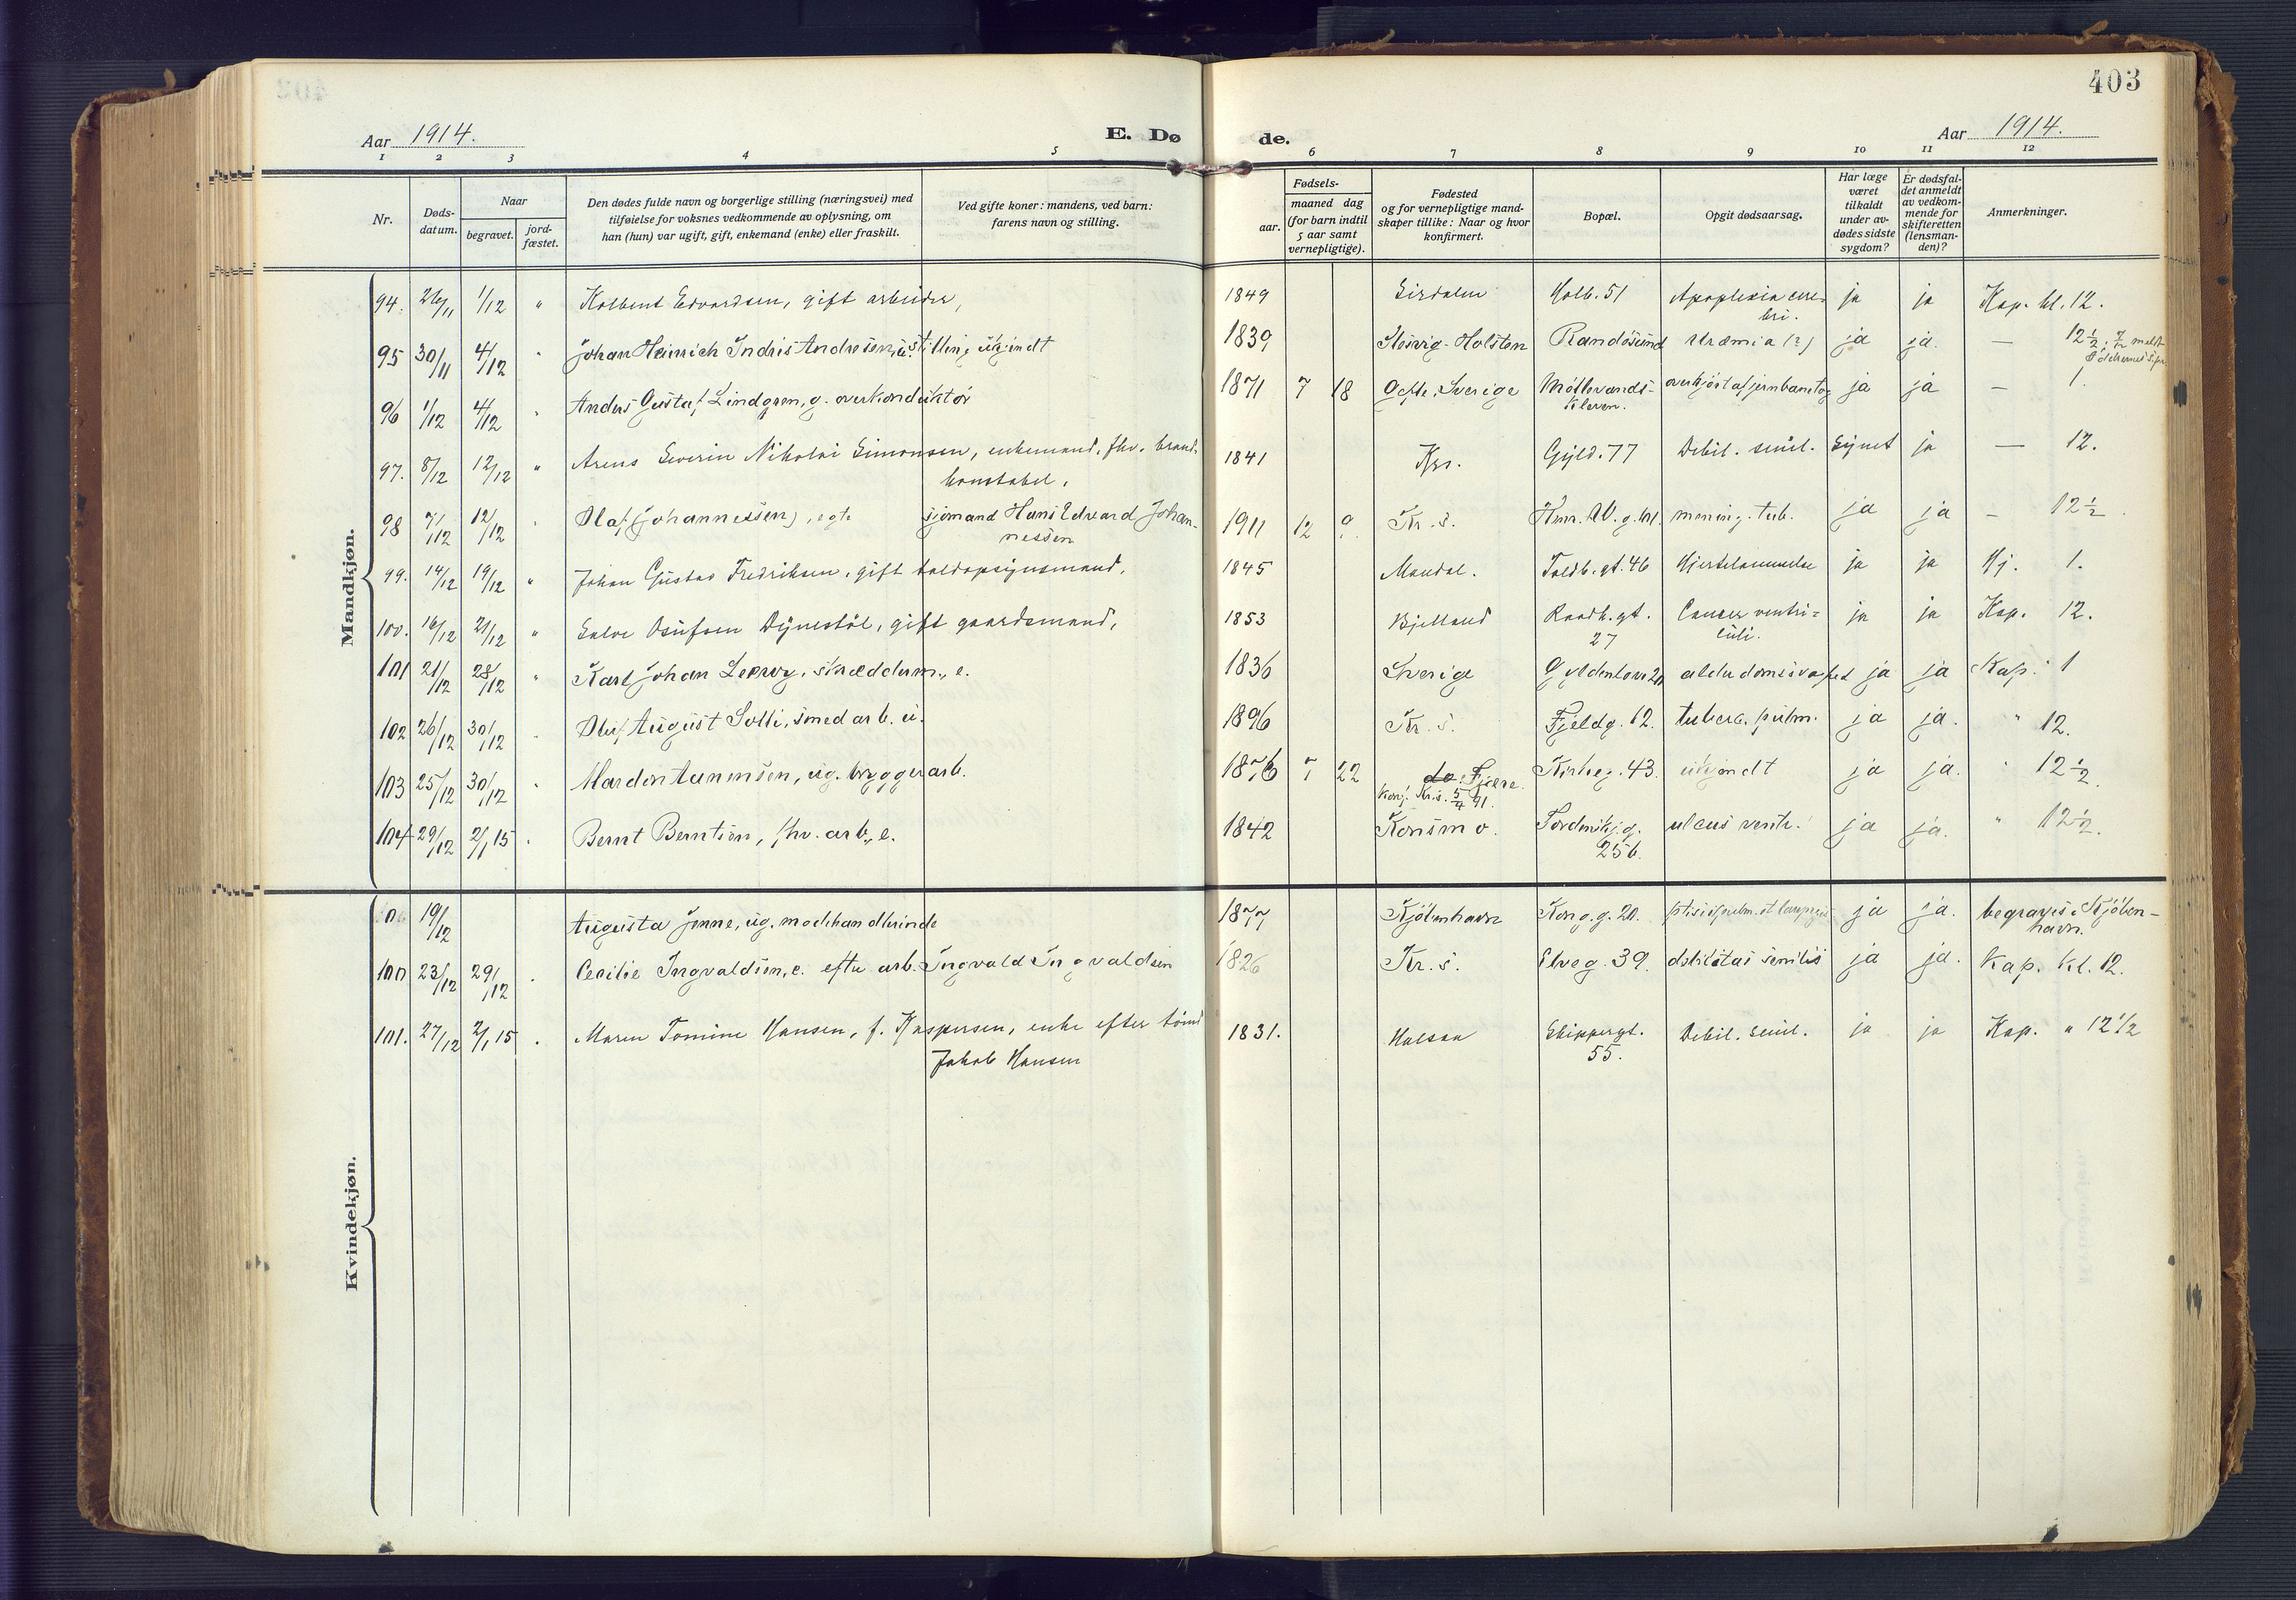 403
Aar 1914. E. Døde. Aar 1914.
1 2 3 4 5 6 7 8 9 10 11 12
Nr. Døds-datum. Naar begravet. jord-fæstet. Den dødes fulde navn og borgerlige stilling (næringsvei) med tilføielse for voksnes vedkommende av oplysning, om han (hun) var ugift, gift, enkemand (enke) eller fraskilt. Ved gifte koner: mandens, ved barn: farens navn og stilling. Fødsels- aar. maaned dag (for barn indtil 5 aar samt vernepligtige). Fødested og for vernepligtige mand-skaper tillike: Naar og hvor konfirmert. Bopæl. Opgit dødsaarsag. Har læge været tilkaldt under av-dødes sidste sygdom? Er dødsfal-det anmeldt av vedkom-mende for skifteretten (lensman-den)? Anmerkninger.
Mandkjøn.
94. 26/11 1/12 " Kolbent Edvardsen, gift arbeider, 1849 Sirdalen Holb. 51 Apoplexia cere-
bri. ja ja Kap. kl. 12.
95 30/11 4/12 " Johan Heinrich Indris Andresen, stilling ukjendt 1839 Slesvig-Holsten Randøsund Uræmia (?) ja ja. — 12 1/2.
96 1/12 4/12 " Anders Gustaf Lindgren, g. overkonduktør 1871 7 18 Sverige Møllevands-
kleven. overkjørt af jernbanetog ja ja — 1.
97. 8/12 12/12 " Arens Severin Nikolai Simonsen, enkemand, fhv. brand-
konstabel. 1841 Krs. Gyld. 77 Debil. senil. Synet ja — 12.
98 7/12 12/12 " Olaf (Johannessen), egte sjømand Hans Edvard Johan-
nessen 1911 12 9 Kr. s. mening. tub. ja ja — 12 1/2
99. 14/12 19/12 " Johan Gustav Fredriksen, gift toldopsynsmand. 1845 Mandal. Toldb. gt. 46 Hjertelammelse ja ja Hj. 1.
100. 16/12 21/12 " Salve Osufsen Dynestøl, gift gaardsmand, 1853 Bjelland Raadh. gt.
27 Cancer ventri=
culi. ja ja Kap. 12.
101 21/12 28/12 " Karl Johan skrædderm., e. 1836 Sverige Gyldenløve 20 alderdomssvakhet ja ja Kap. 1
102 26/12 30/12 " Oluf August Solli, smedarb. u. 1896 Kr. s. Fjeldg. 12. tuberc. pulm. ja ja. " 12.
103 25/12 30/12 " Mardon Aanensen, ug. bryggerarb. 1876 7 22 do. Fjære.
Konf. Kr.s. 5/4 91. Kirkeg. 43. ukjendt ja ja. " 12 1/2.
104 29/12 2/1 15 " Bernt Berntsen, fhv. arb., e. 1842 Konsmo. Tordenskj. g.
25 b. ulcus ventr. ja ja. " 12 1/2.
Kvindekjøn.
19/12 Augusta Jenne, ug. modehandlerinde 1877 Kjøbenhavn Kong. g. 20. ja ja. begraves i Kjøben-
havn.
100 23/12 29/12 . Cecilie Ingvaldsen, e. efter arb. Ingvald Ingvaldsen 1826 Kr. s. Elveg. 39. debilitas senilis ja ja. Kap. kl. 12.
101. 27/12 2/1 15 . Maren Tomine Hansen, f. Kaspersen, enke efter tømm
Jakob Hansen 1831. Halsaa Skippergt.
55. Debil. senil. ja ja Kap. " 12 1/2